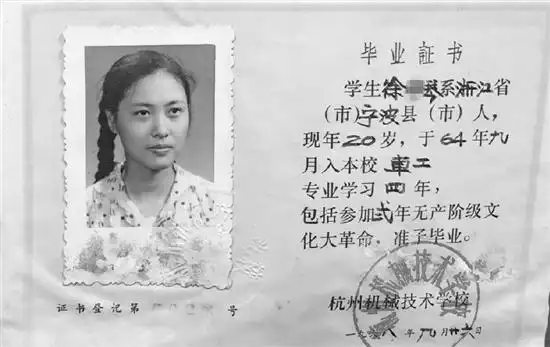 毕业証书
学生徐 系浙江省
(市)宁波县(市)人,
现年20岁,于64年九
月入本校 車工
专业学习四年,
包括参加弍年无产阶级文
化大革命,准予毕业。
证书登记第 号
杭州机械技术学校
一九六八年九月廿六日